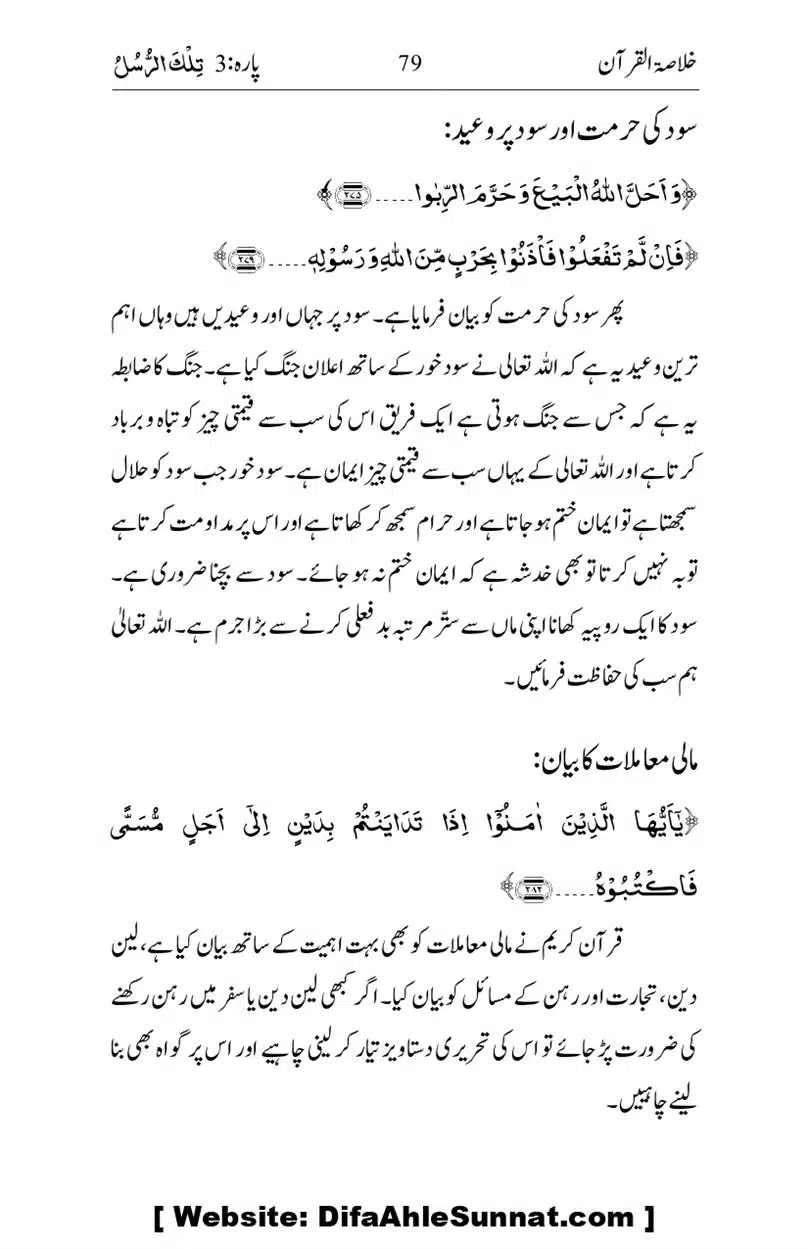 خلاصۃ القرآن 79 پارہ:3 تِلْكَ الرُّسُلُ
سود کی حرمت اور سود پر وعید:
﴿وَاَحَلَّ اللّٰهُ الْبَيْعَ وَحَرَّمَ الرِّبٰوا.....﴿۲۷۵﴾﴾
﴿فَاِنْ لَّمْ تَفْعَلُوْا فَاْذَنُوْا بِحَرْبٍ مِّنَ اللّٰهِ وَرَسُوْلِهٖ.....﴿۲۷۹﴾﴾
پھر سود کی حرمت کو بیان فرمایا ہے۔ سود پر جہاں اور وعیدیں ہیں وہاں اہم
ترین وعید یہ ہے کہ اللہ تعالی نے سود خور کے ساتھ اعلان جنگ کیا ہے۔ جنگ کا ضابطہ
یہ ہے کہ جس سے جنگ ہوتی ہے ایک فریق اس کی سب سے قیمتی چیز کو تباہ و برباد
کرتا ہے اور اللہ تعالی کے یہاں سب سے قیمتی چیز ایمان ہے۔ سود خور جب سود کو حلال
سمجھتا ہے تو ایمان ختم ہو جاتا ہے اور حرام سمجھ کر کھاتا ہے اور اس پر مداومت کرتا ہے
توبہ نہیں کرتا تو بھی خدشہ ہے کہ ایمان ختم نہ ہو جائے۔ سود سے بچنا ضروری ہے۔
سود کا ایک روپیہ کھانا اپنی ماں سے ستّر مرتبہ بدفعلی کرنے سے بڑا جرم ہے۔ اللہ تعالیٰ
ہم سب کی حفاظت فرمائیں۔
مالی معاملات کا بیان:
﴿يٰٓاَيُّهَا الَّذِيْنَ اٰمَنُوْٓا اِذَا تَدَايَنْتُمْ بِدَيْنٍ اِلٰٓى اَجَلٍ مُّسَمًّى
فَاكْتُبُوْهُ.....﴿۲۸۲﴾﴾
قرآن کریم نے مالی معاملات کو بھی بہت اہمیت کے ساتھ بیان کیا ہے، لین
دین، تجارت اور رہن کے مسائل کو بیان کیا۔ اگر کبھی لین دین یا سفر میں رہن رکھنے
کی ضرورت پڑ جائے تو اس کی تحریری دستاویز تیار کر لینی چاہیے اور اس پر گواہ بھی بنا
لینے چاہییں۔
[ Website: DifaAhleSunnat.com ]